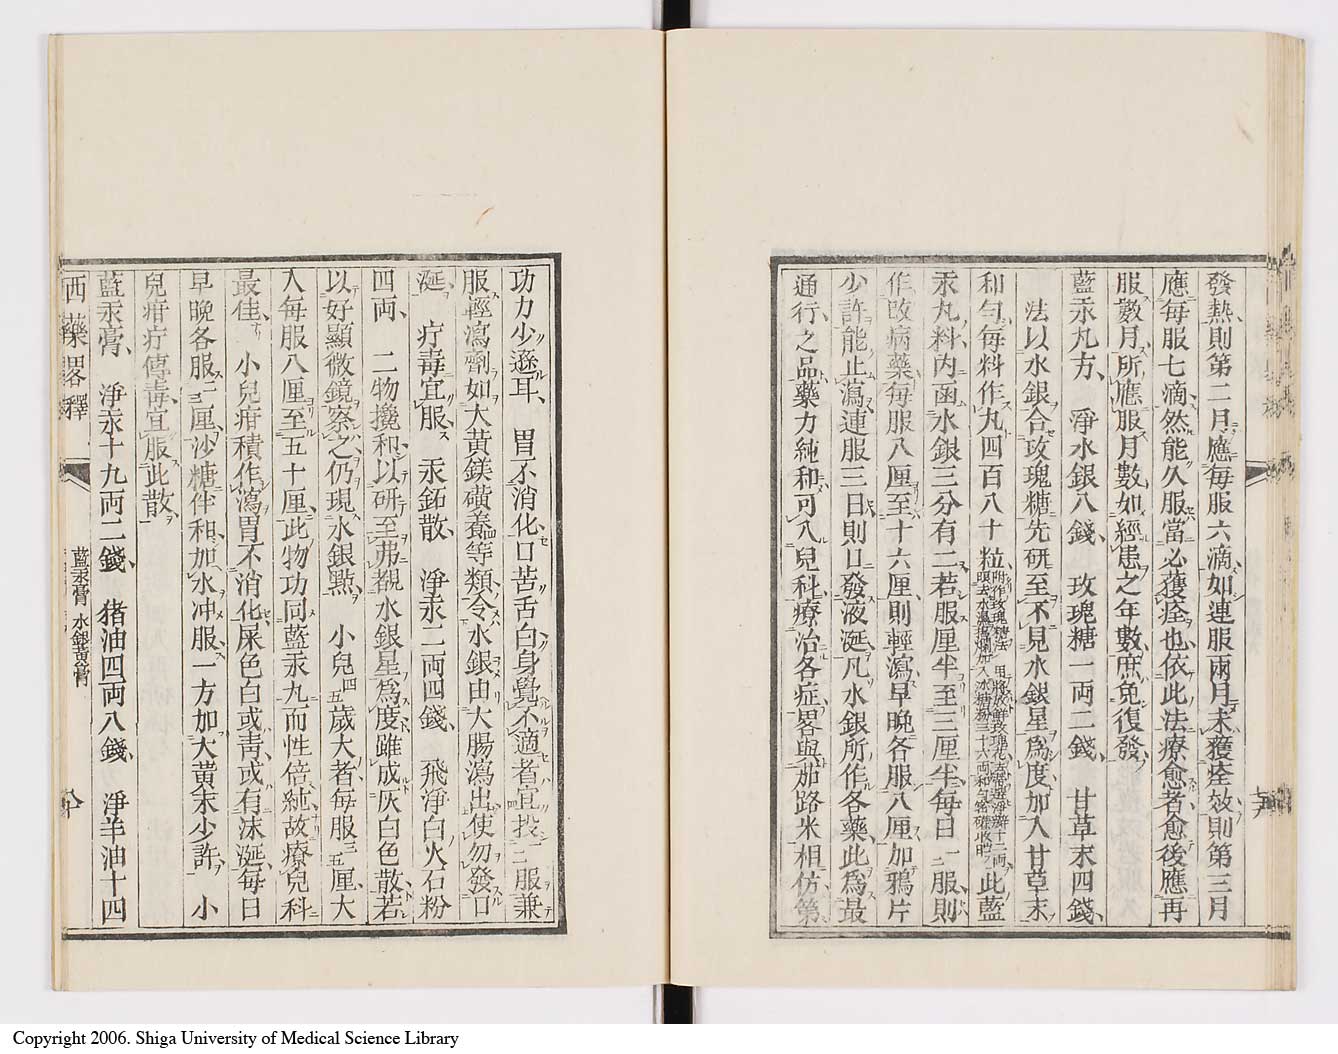 發熱則第二月應每服六滴如連服兩月未獲痊效則第三月
應每服七滴然能久服當必獲痊也依此法療愈者愈後應再
服數月所應服月數如經患之年數庶免復發
藍汞丸方　淨水銀八錢　玫瑰糖一両二錢　甘草末四錢
法以水銀合玫瑰糖先研至不見水銀星為度加入甘草末
和勻每料作丸四百八十粒此藍
汞丸料內函水銀三分有二若服厘半至三厘半每日一二服則
作改病藥每服八厘至十六厘則輕瀉早晚各服八厘加鴉片
少許能止瀉連服三日則口發液涎凡水銀所作各藥此為最
通行之品藥力純和可入兒科療冶各症畧與茄路米相仿第
功力少遜耳　胃不消化口苦舌白身覺不適者宜投一二服兼
服輕瀉劑如大黃鎂磺養等類令水銀由大腸瀉出使勿發口
涎　疔毒宜服　汞鉐散　淨汞二両四錢　飛淨白火石粉
四両　二物攙和以研至弗覩水銀星為度雖成灰白色散若
以好顯微鏡察之仍現水銀點　小兒四五歲大者每服三五厘大
人每服八厘至五十厘此物功同藍汞丸而性倍純故療兒科
最佳　小兒疳積作瀉胃不消化屎色白或靑或有沫涎每日
早晚各服二三厘沙糖伴和加水冲服一方加大黃末少許　小
兒疳疔傳毒宜服此散
藍汞膏　淨汞十九両二錢　猪油四両八錢　淨羊油十四
西藥畧釋
藍汞膏 水銀黃膏